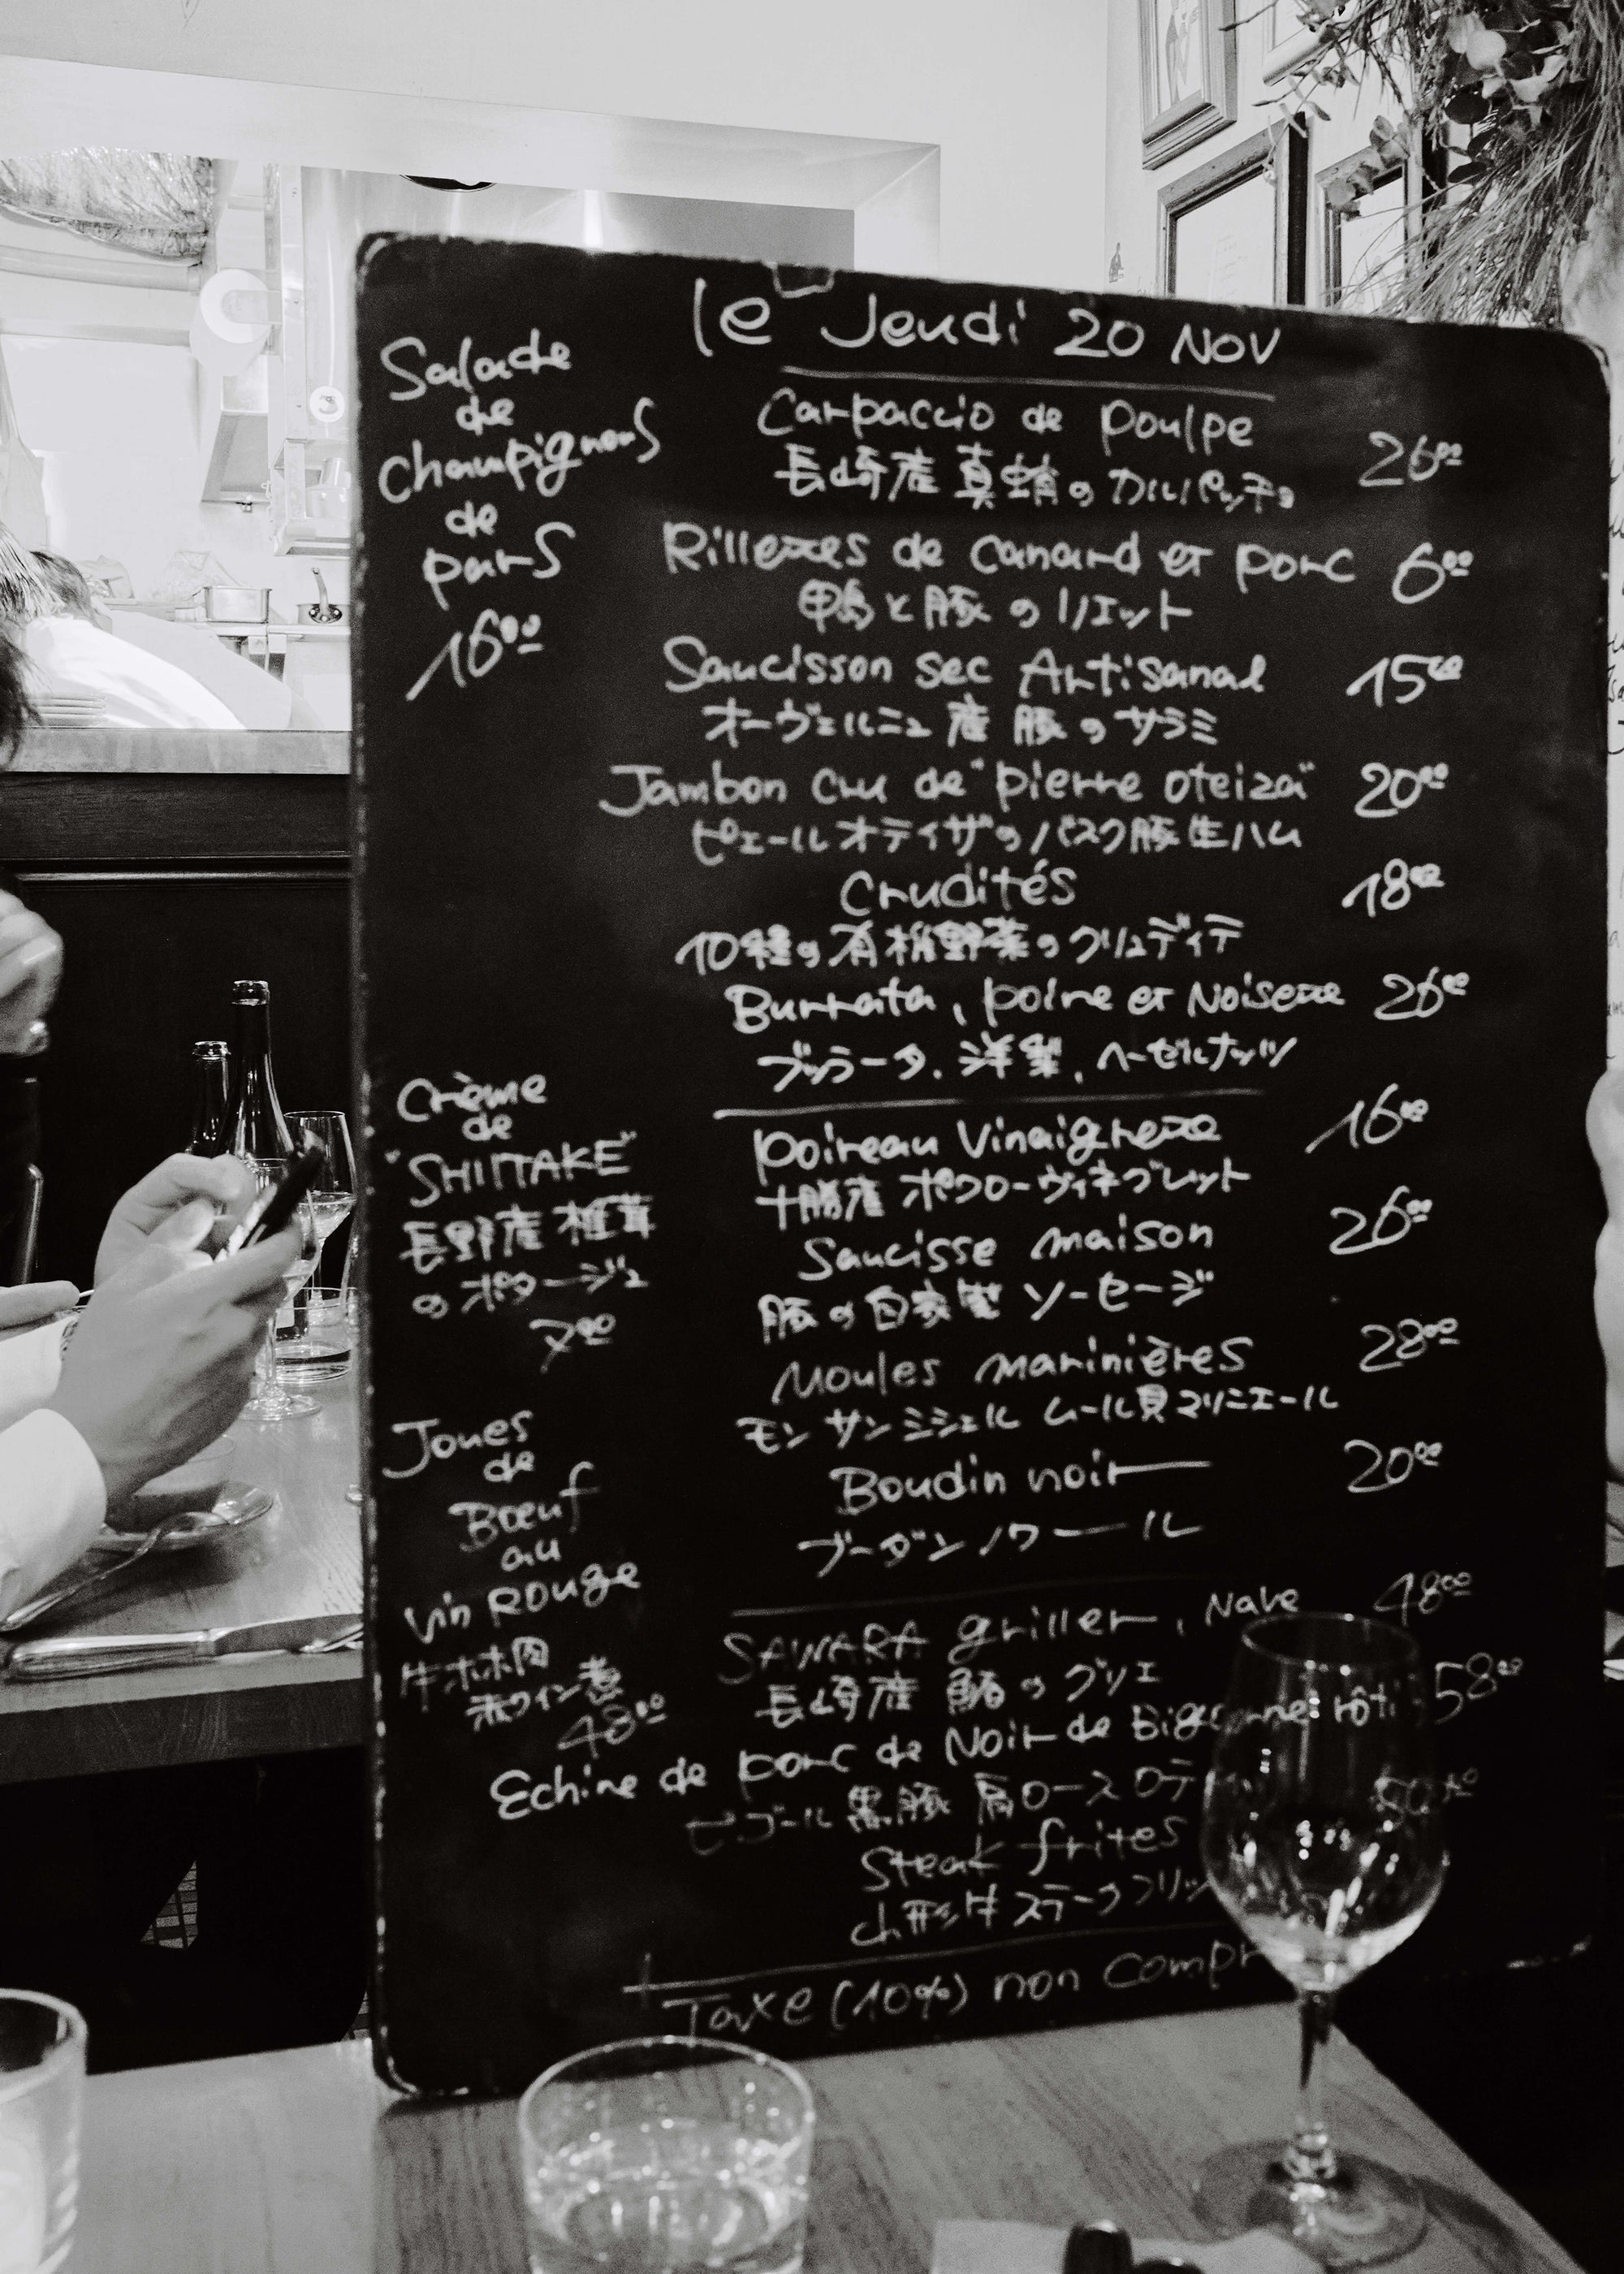 le Jeudi 20 NOV
Salade
de
champignons
de
paris
16⁰⁰
Carpaccio de poulpe 26⁰⁰
長崎産 真蛸のカルパッチョ
Rillettes de canard et porc 6⁰⁰
鴨と豚のリエット
Saucisson sec Artisanal 15⁰⁰
オーヴェルニュ産 豚のサラミ
Jambon cru de "pierre oteiza" 20⁰⁰
ピエールオテイザのバスク豚生ハム
Crudités 18⁰⁰
10種の有機野菜のクリュディテ
Burrata, poire et Noisette 26⁰⁰
ブッラータ、洋梨、ヘーゼルナッツ
Crème
de
"SHIITAKE"
長野産 椎茸
のポタージュ
7⁰⁰
poireau Vinaigrette 16⁰⁰
十勝産 ポワローヴィネグレット
Saucisse maison 26⁰⁰
豚の自家製 ソーセージ
Moules marinières 28⁰⁰
モンサンミシェル ムール貝マリニエール
Boudin noir 20⁰⁰
ブーダンノワール
Joues
de
Bœuf
au
Vin Rouge
牛ホホ肉
赤ワイン煮
48⁰⁰
SAWARA griller, Nave 48⁰⁰
長崎産 鰆のグリエ
Echine de porc de Noir de rôti 58⁰⁰
ビゴール黒豚 肩ロース
Steak frites
ステーク
Taxe (10%) non